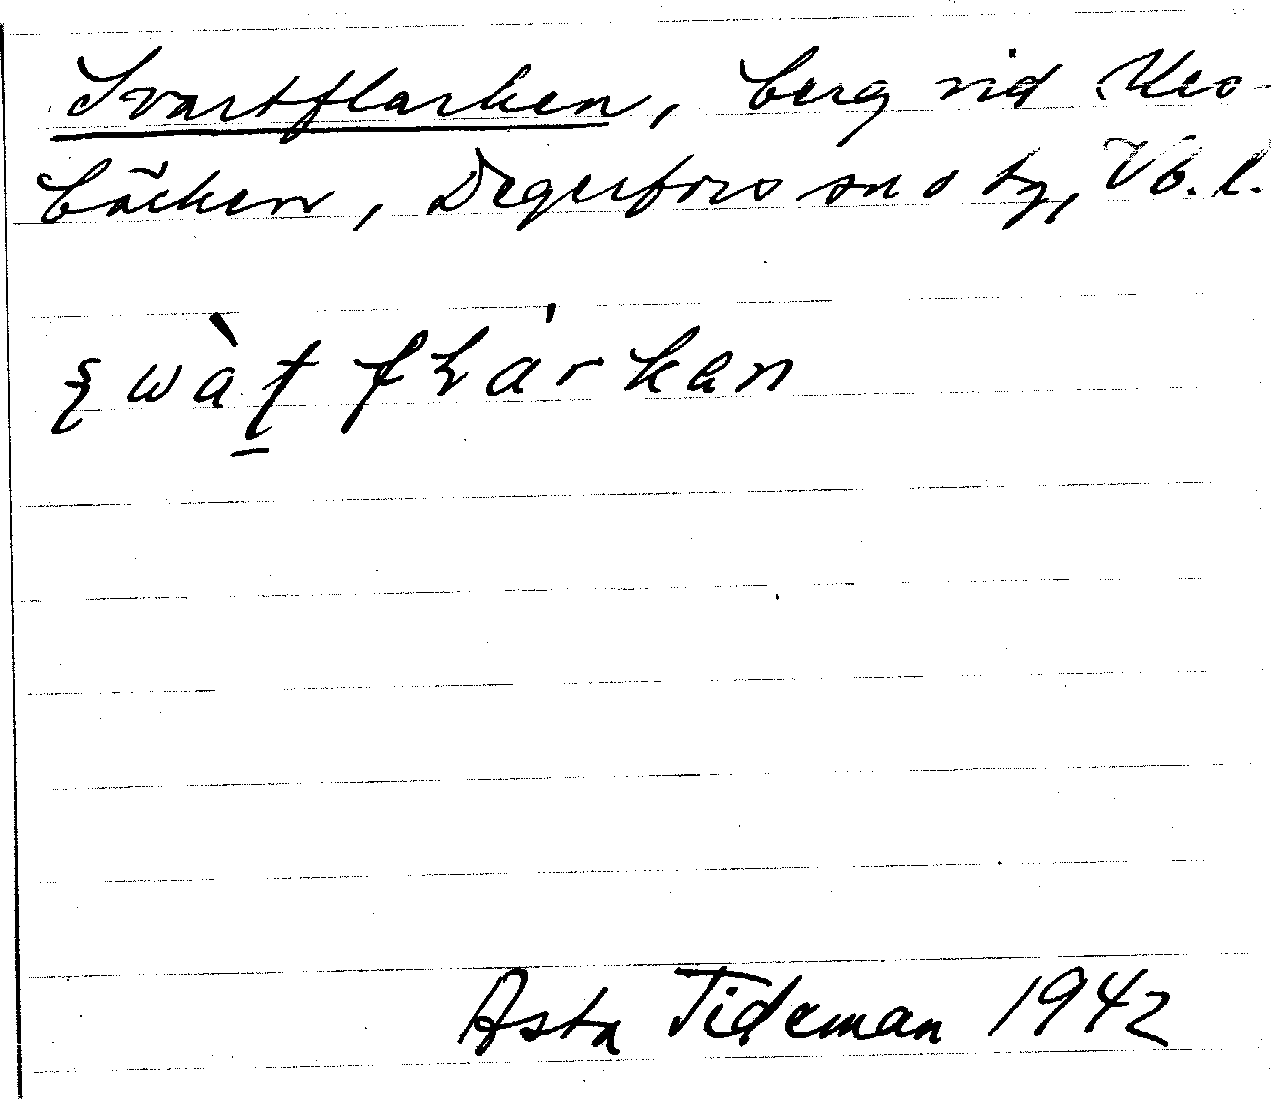 Svartflarken, berg vid Ues-
bäcken, Degerfors sn o tg, Vb. l.
ʂwàʈfɫárkan
Asta Tideman 1942